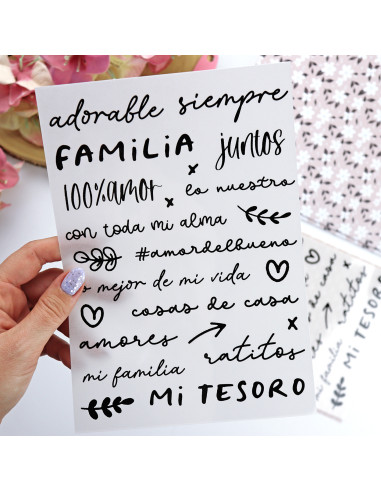 adorable siempre
FAMILIA juntos
100%amor lo nuestro
con toda mi alma
#amordelbueno
lo mejor de mi vida
cosas de casa
amores
mi familia ratitos
MI TESORO
ratitos
mi familia
MI TESORO